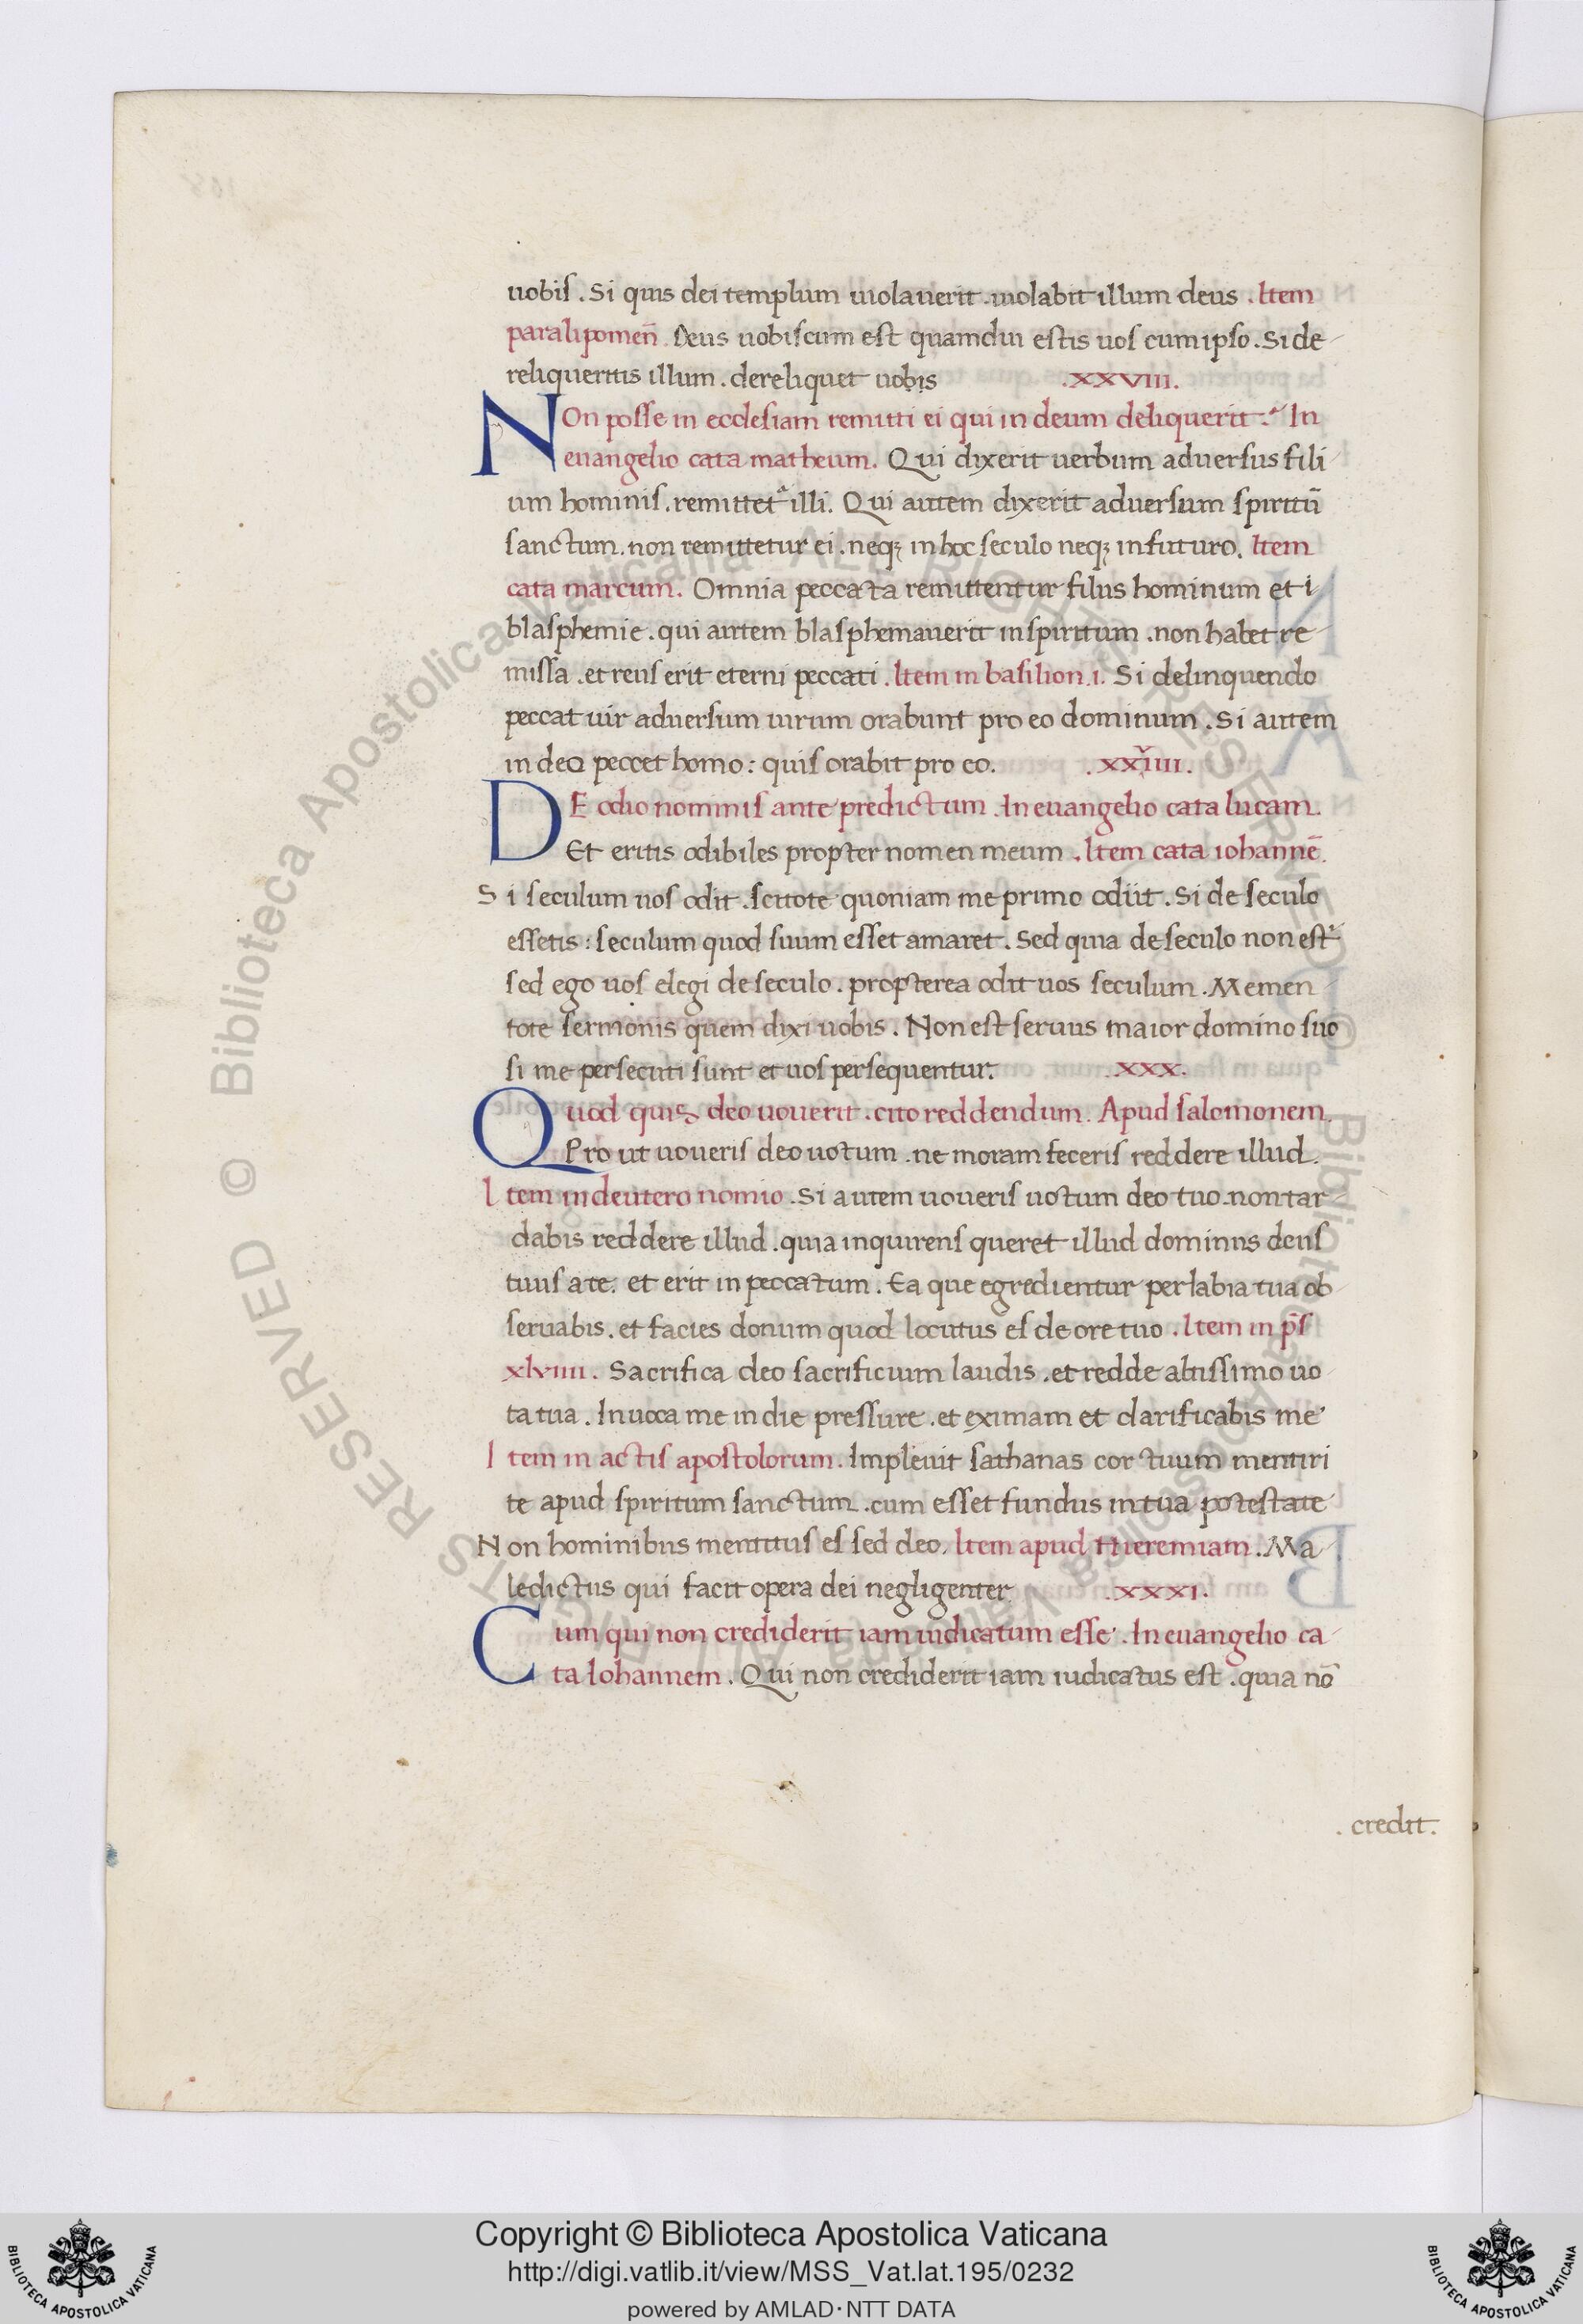 uobis . Si quis dei templum uiolauerit . uiolabit illum deus . Item
paralipomen̄ . Deus uobiscum est quamdiu estis uos cum ipso . Si de
reliqueritis illum . dereliquet uobis .XXVIII.
NOn posse in ecclesiam remitti ei qui in deum deliquerit. In
euangelio cata matheum. Qui dixerit uerbum aduersus fili
um hominis . remittet᷑ illi. Qui autem dixerit aduersum spiritū
sanctum . non remittetur ei . neqꝫ in hoc seculo neqꝫ in futuro. Item
cata marcum. Omnia peccata remittentur filiis hominum et i
blasphemie . qui autem blasphemauerit in spiritum . non habet re
missā . et reus erit eterni peccati . Item in basilion .i. Si delinquendo
peccat uir aduersum uirum orabunt pro eo dominum . Si autem
in deo peccet homo : quis orabit pro eo. . XXVIIII.
DE odio nominis ante predictum . In euangelio cata lucam.
Et eritis odibiles propter nomen meum . Item cata iohannē.
Si seculum uos odit . scitote quoniam me primo odiit . Si de seculo
essetis : seculum quod suum esset amaret . Sed quia de seculo non est᷑
sed ego uos elegi de seculo . propterea odit uos seculum . Memen
tote sermonis quem dixi uobis . Non est seruus maior domino suo
si me persecuti sunt et uos persequentur. .XXX.
Quod quis deo uouerit . cito reddendum. Apud salomonem.
Pro ut uoueris deo uotum . ne moram feceris reddere illud.
Item in deuteronomio . Si autem uoueris uotum deo tuo . non tar
dabis reddere illud . quia inquirens queret illud dominus deus
tuus a te. et erit in peccatum . Ea que egredientur per labia tua ob
seruabis . et facies donum quod locutus es de ore tuo . Item in p̄s
xlviiii . Sacrifica deo sacrificium laudis . et redde altissimo uo
ta tua . Inuoca me in die pressure . et eximam et clarificabis me
Item in actis apostolorum . Impleuit sathanas cor tuum mentiri
te apud spiritum sanctum . cum esset fundus in tua potestate
Non hominibus mentitus es sed deo. Item apud Hieremiam . Ma
ledictus qui facit opera dei negligenter .XXXI.
Cum qui non crediderit iam iudicatum esse . In euangelio ca
ta Iohannem . Qui non crediderit iam iudicatus est . quia nō
. credit.
© Biblioteca Apostolica Vaticana ALL RIGHTS RESERVED
© Biblioteca Apostolica Vaticana ALL RIGHTS RESERVED
Copyright © Biblioteca Apostolica Vaticana
http://digi.vatlib.it/view/MSS_Vat.lat.195/0232
powered by AMLAD·NTT DATA
BIBLIOTECA APOSTOLICA VATICANA
BIBLIOTECA APOSTOLICA VATICANA